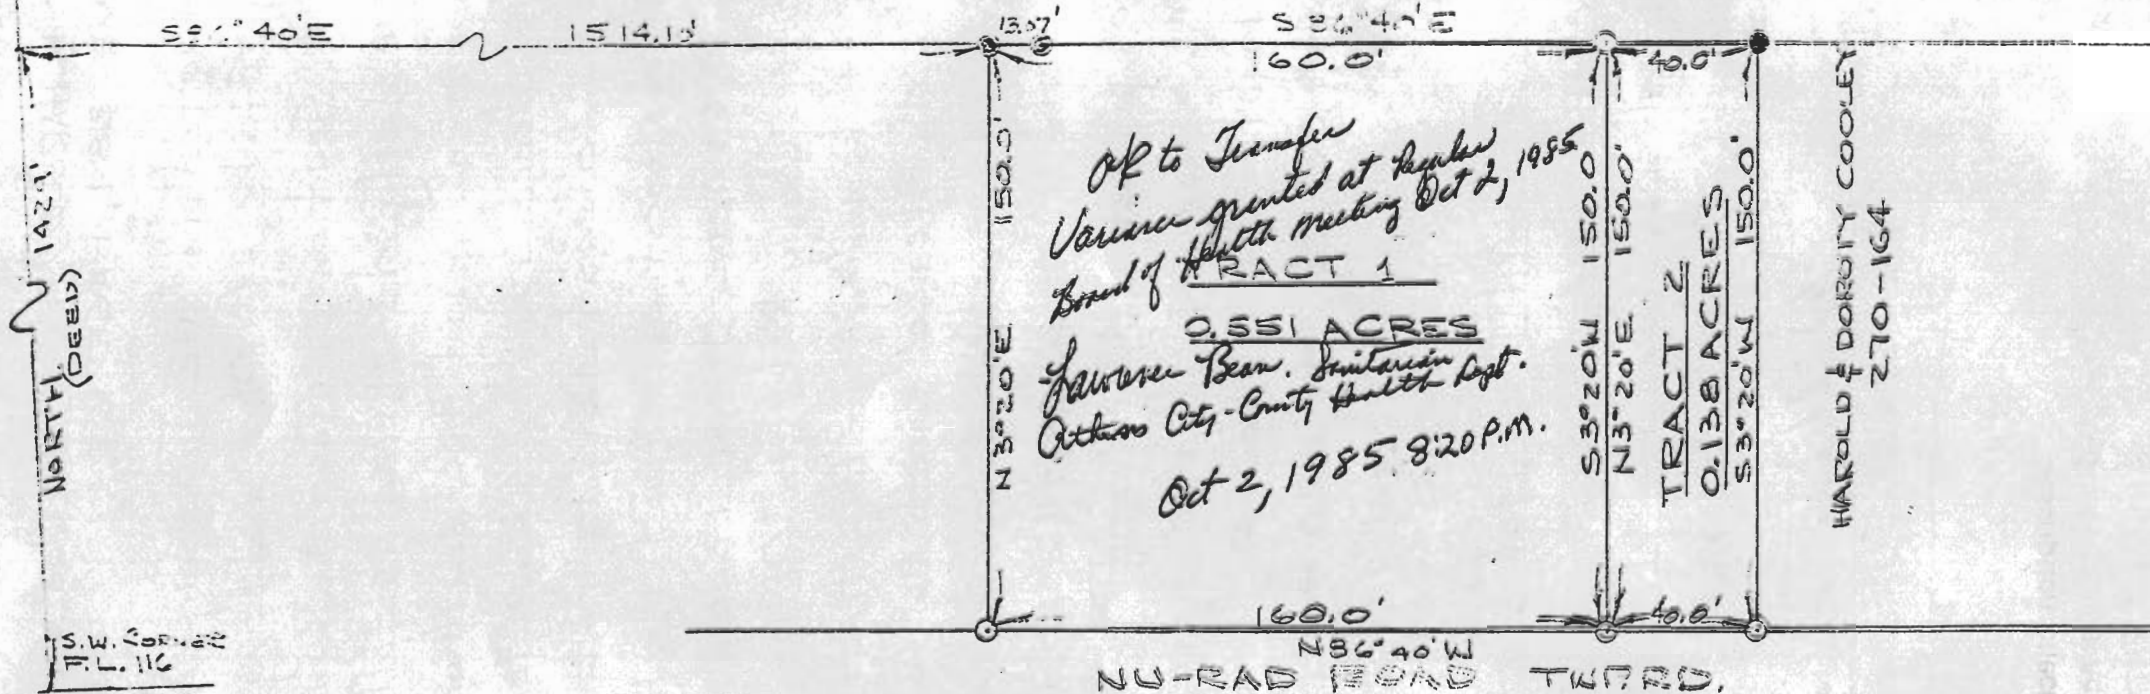 S86°40'E
1514.15'
13.57'
S 86°40'E
160.0'
40.0'
1424.1'
NORTH
(DEED)
S.W. CORNER
F.L. 116
150.0'
N 3°20'E
OK to Transfer
Variance granted at Regular
Board of Health meeting Oct 2, 1985
TRACT 1
0.551 ACRES
Lawrence Bean, Sanitarian
Athens City-County Health Dept.
Oct 2, 1985 8:20 P.M.
S3°20'W 150.0
N3°20'E 150.0'
TRACT 2
0.138 ACRES
S3°20'W 150.0'
HAROLD & DOROTY COOLEY
270-164
160.0'
40.0'
N86°40'W
NU-RAD ROAD TWP.RD.